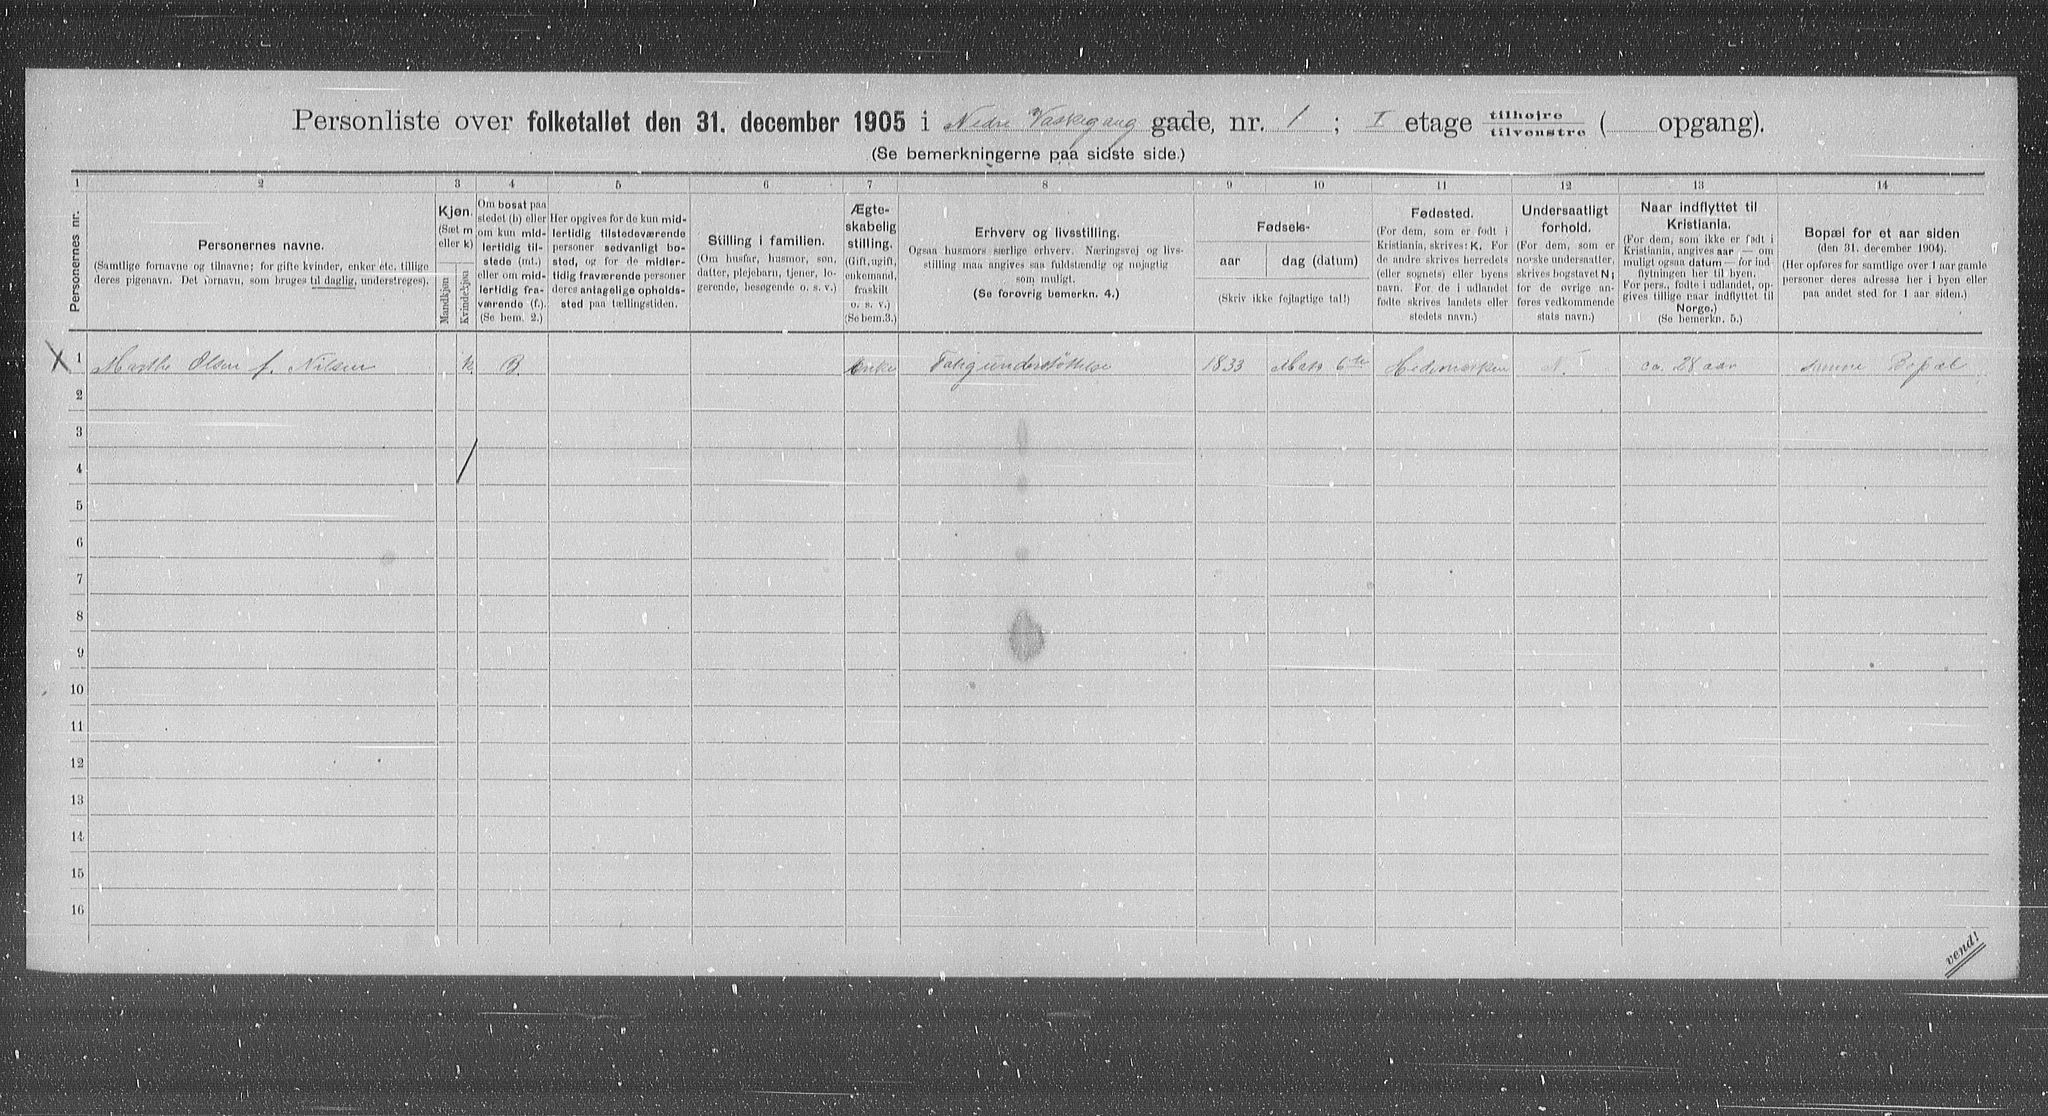 Personliste over folketallet den 31. december 1905 i Nedre Vaskegang gade, nr. 1; I etage tilhøjre tilvenstre ( opgang).
(Se bemerkningerne paa sidste side.)
1 2 3 4 5 6 7 8 9 10 11 12 13 14
Personernes nr.
Personernes navne.
(Samtlige fornavne og tilnavne; for gifte kvinder, enker etc. tillige
deres pigenavn. Det fornavn, som bruges til daglig, understreges).
Kjøn.
(Sæt m
eller k)
Mandkjøn
Kvindekjøn
Om bosat paa
stedet (b) eller
om kun mid-
lertidig til-
stede (mt.)
eller om mid-
lertidig fra-
værende (f.)
(Se bem. 2.)
Her opgives for de kun mid-
lertidig tilstedeværende
personer sedvanligt bo-
sted, og for de midler-
tidig fraværende personer
deres antagelige opholds-
sted paa tællingstiden.
Stilling i familien.
(Om husfar, husmor, søn,
datter, plejebarn, tjener, lo-
gerende, besøgende o. s. v.)
Ægte-
skabelig
stilling.
(Gift, ugift,
enkemand,
fraskilt
o. s. v.)
(Se bem. 3.)
Erhverv og livsstilling.
Ogsaa husmors særlige erhverv. Næringsvej og livs-
stilling maa angives saa fuldstændig og nøjagtig
som muligt.
(Se forøvrig bemerkn. 4.)
Fødsels-
aar
dag (datum)
(Skriv ikke fejlagtige tal!)
Fødested.
(For dem, som er født i
Kristiania, skrives: K. For
de andre skrives herredets
(eller sognets) eller byens
navn. For de i udlandet
fødte skrives landets eller
stedets navn.)
Undersaatligt
forhold.
(For dem, som er
norske undersaatter,
skrives bogstavet N;
for de øvrige an-
føres vedkommende
stats navn.)
Naar indflyttet til
Kristiania.
(For dem, som ikke er født i
Kristiania, angives aar — om
muligt ogsaa datum — for ind-
flytningen her til byen.
For pers., fødte i udlandet, op-
gives tillige naar indflyttet til
Norge.)
(Se bemerkn. 5.)
Bopæl for et aar siden
(den 31. december 1904).
(Her opføres for samtlige over 1 aar gamle
personer deres adresse her i byen eller
paa andet sted for 1 aar siden.)
1 Marthe Olsen f. Nilsen k. B. Enke Fatigunderstøttelse 1833 Mats 6te Hedemarken N. ca. 28 aar samme Bopæl
2
3
4
5
6
7
8
9
10
11
12
13
14
15
16
vend!